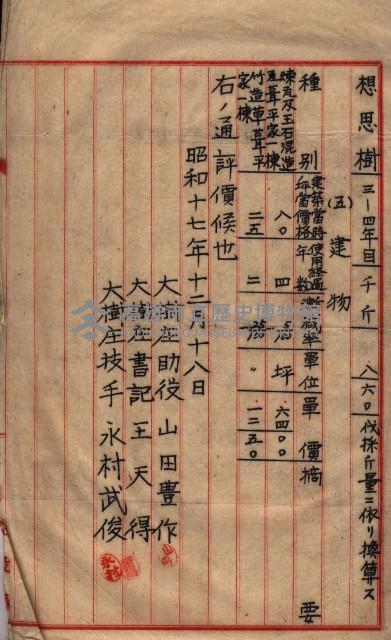 想思樹 三—四年目 千斤 八六〇 伐採斤量ニ依リ換算ス
(五) 建物
種別 建築當時坪當價格 使用經過年數 漸減率 單位 單價 摘要
煉瓦及玉石混造瓦葺平家一棟 八〇 四 坪 六四〇〇
竹造草葺平家一棟 二五 二 〃 一二五〇
右ノ通評價候也
昭和十七年十二月十八日
大樹庄助役 山田豊作
大樹庄書記 王天得
大樹庄技手 永村武俊
高雄市立歷史博物館